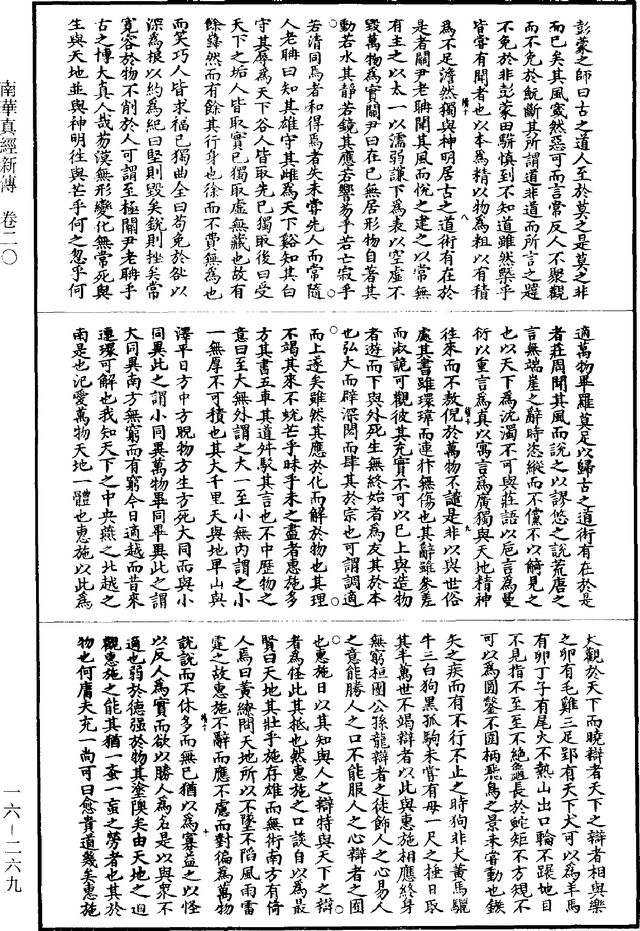 彭蒙之師曰古之道人至於莫之是莫之非
而已矣其風窢然惡可而言常反人不聚觀
而不免於魭斷其所謂道非道而所言之韙
不免於非彭蒙田駢慎到不知道雖然槩乎
皆嘗有聞者也以本為精以物為粗以有積
為不足澹然獨與神明居古之道術有在於
是者關尹老聃聞其風而悅之建之以常無
有主之以太一以濡弱謙下為表以空虛不
毀萬物為實關尹曰在己無居形物自著其
動若水其靜若鏡其應若響芴乎若亡寂乎
若清同焉者和得焉者失未嘗先人而常隨
人老聃曰知其雄守其雌為天下谿知其白
守其辱為天下谷人皆取先己獨取後曰受
天下之垢人皆取實己獨取虛無藏也故有
餘巋然而有餘其行身也徐而不費無為也
而笑巧人皆求福己獨曲全曰苟免於咎以
深為根以約為紀曰堅則毀矣銳則挫矣常
寬容於物不削於人可謂至極關尹老聃乎
古之博大真人哉芴漠無形變化無常死與
生與天地並與神明往與芒乎何之忽乎何
適萬物畢羅莫足以歸古之道術有在於是
者莊周聞其風而說之以謬悠之說荒唐之
言無端崖之辭時恣縱而不儻不以觭見之
也以天下為沈濁不可與莊語以巵言為曼
衍以重言為真以寓言為廣獨與天地精神
往來而不敖倪於萬物不譴是非以與世俗
處其書雖瓌瑋而連犿無傷也其辭雖參差
而諔詭可觀彼其充實不可以已上與造物
者遊而下與外死生無終始者為友其於本
也弘大而辟深閎而肆其於宗也可謂調適
而上遂矣雖然其應於化而解於物也其理
不竭其來不蛻芒乎昧乎未之盡者惠施多
方其書五車其道舛駁其言也不中歷物之
意曰至大無外謂之大一至小無內謂之小
一無厚不可積也其大千里天與地卑山與
澤平日方中方睨物方生方死大同而與小
同異此之謂小同異萬物畢同畢異此之謂
大同異南方無窮而有窮今日適越而昔來
連環可解也我知天下之中央燕之北越之
南是也氾愛萬物天地一體也惠施以此為
大觀於天下而曉辯者天下之辯者相與樂
之卵有毛雞三足郢有天下犬可以為羊馬
有卵丁子有尾火不熱山出口輪不蹍地目
不見指不至至不絕龜長於蛇矩不方規不
可以為圓鑿不圍枘飛鳥之景未嘗動也鏃
矢之疾而有不行不止之時狗非犬黃馬驪
牛三白狗黑孤駒未嘗有母一尺之捶日取
其半萬世不竭辯者以此與惠施相應終身
無窮桓團公孫龍辯者之徒飾人之心易人
之意能勝人之口不能服人之心辯者之囿
也惠施日以其知與人之辯特與天下之辯
者為怪此其柢也然惠施之口談自以為最
賢曰天地其壯乎施存雄而無術南方有倚
人焉曰黃繚問天地所以不墜不陷風雨雷
霆之故惠施不辭而應不慮而對徧為萬物
說說而不休多而無已猶以為寡益之以怪
以反人為實而欲以勝人為名是以與衆不
適也弱於德強於物其塗隩矣由天地之道
觀惠施之能其猶一蚉一䖟之勞者也其於
物也何庸夫充一尚可曰愈貴道幾矣惠施
南華真經新傳　卷二〇
一六—二六九